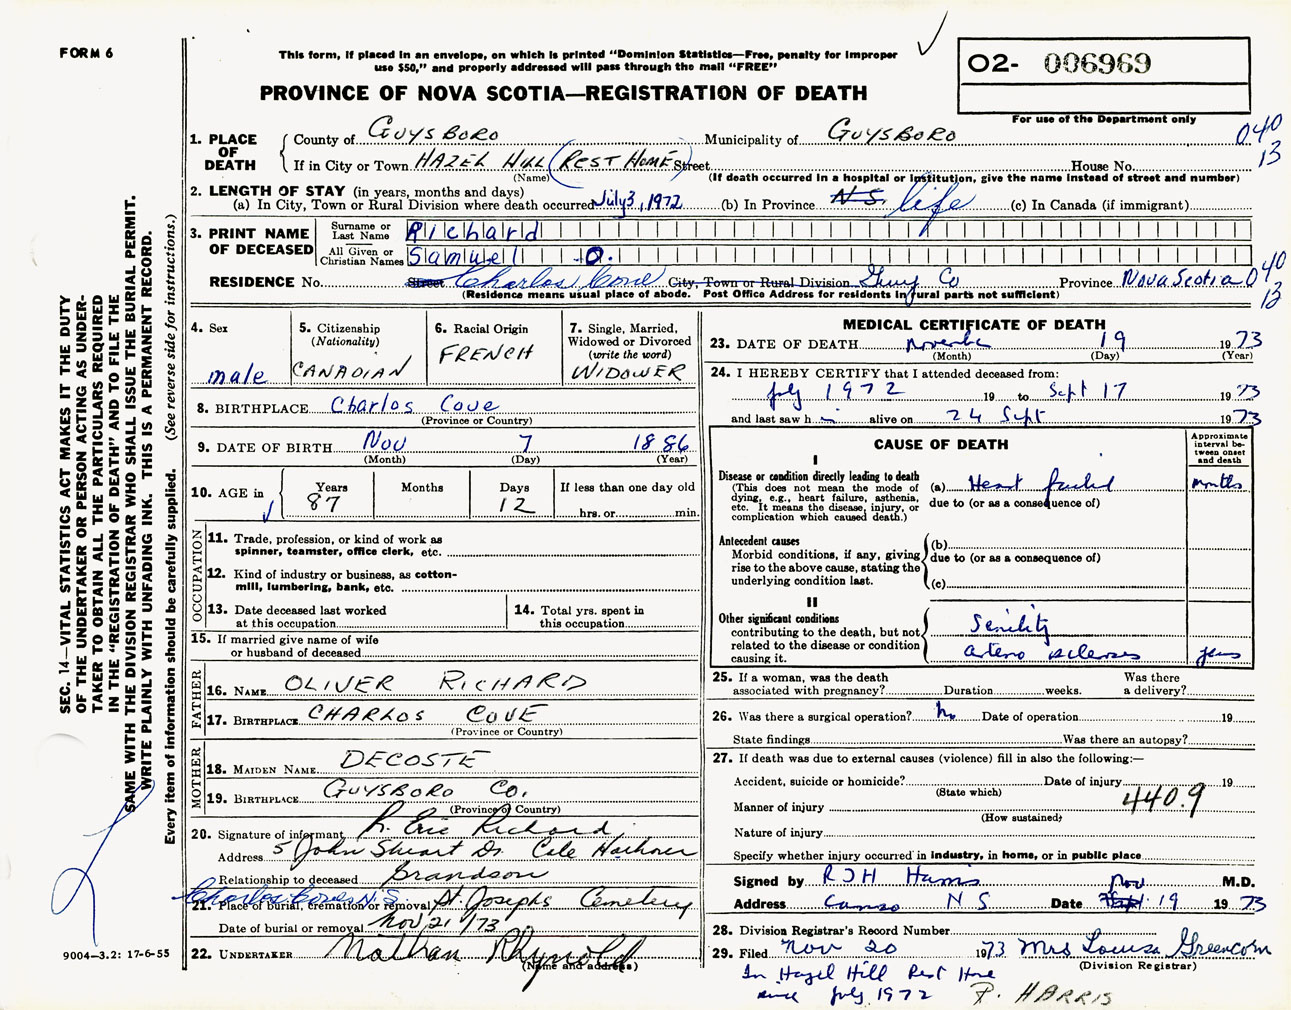 FORM 6
This form, if placed in an envelope, on which is printed "Dominion Statistics—Free, penalty for improper
use $50," and properly addressed will pass through the mail "FREE"
O2- 006969
PROVINCE OF NOVA SCOTIA—REGISTRATION OF DEATH
For use of the Department only
040
13
1. PLACE OF DEATH
County of GUYSBORO Municipality of GUYSBORO
If in City or Town HAZEL HILL (REST HOME) Street House No.
(Name) (If death occurred in a hospital or institution, give the name instead of street and number)
2. LENGTH OF STAY (in years, months and days)
(a) In City, Town or Rural Division where death occurred July 3, 1972 (b) In Province N.S. life (c) In Canada (if immigrant)
3. PRINT NAME OF DECEASED
Surname or Last Name Richard
All Given or Christian Names Samuel O.
040
13
RESIDENCE No. Street Charlos Cove City, Town or Rural Division Guy Co Province Nova Scotia
(Residence means usual place of abode. Post Office Address for residents in rural parts not sufficient)
4. Sex male
5. Citizenship (Nationality) CANADIAN
6. Racial Origin FRENCH
7. Single, Married, Widowed or Divorced (write the word) WIDOWER
8. BIRTHPLACE Charlos Cove
(Province or Country)
9. DATE OF BIRTH Nov 7 1886
(Month) (Day) (Year)
10. AGE in Years 87 Months Days 12 If less than one day old hrs. or min.
OCCUPATION
11. Trade, profession, or kind of work as
spinner, teamster, office clerk, etc.
12. Kind of industry or business, as cotton-
mill, lumbering, bank, etc.
13. Date deceased last worked
at this occupation
14. Total yrs. spent in
this occupation
15. If married give name of wife
or husband of deceased
FATHER
16. NAME OLIVER RICHARD
17. BIRTHPLACE CHARLOS COVE
(Province or Country)
MOTHER
18. MAIDEN NAME DECOSTE
19. BIRTHPLACE GUYSBORO CO.
(Province or Country)
20. Signature of informant R. Eric Richard
Address 5 John Stewart Dr. Cole Harbour
Relationship to deceased Grandson
Charlos Cove N.S.
21. Place of burial, cremation or removal St. Josephs Cemetery
Date of burial or removal Nov 21/73
22. UNDERTAKER Nathan Rhynold
(Name and address)
MEDICAL CERTIFICATE OF DEATH
23. DATE OF DEATH November 19 1973
(Month) (Day) (Year)
24. I HEREBY CERTIFY that I attended deceased from:
July 1972 19 to Sept 17 1973
and last saw h im alive on 24 Sept 1973
CAUSE OF DEATH
Approximate interval between onset and death
I
Disease or condition directly leading to death
(This does not mean the mode of
dying, e.g., heart failure, asthenia,
etc. It means the disease, injury, or
complication which caused death.)
(a) Heart failed months
due to (or as a consequence of)
Antecedent causes
Morbid conditions, if any, giving
rise to the above cause, stating the
underlying condition last.
(b)
due to (or as a consequence of)
(c)
II
Other significant conditions
contributing to the death, but not
related to the disease or condition
causing it.
Senility
arterio sclerosis years
25. If a woman, was the death
associated with pregnancy? Duration weeks. Was there
a delivery?
26. Was there a surgical operation? no Date of operation 19
State findings Was there an autopsy?
27. If death was due to external causes (violence) fill in also the following:—
Accident, suicide or homicide? Date of injury 19
(State which)
Manner of injury 440.9
(How sustained)
Nature of injury
Specify whether injury occurred in industry, in home, or in public place
Signed by R J H Harris M.D.
Address Canso N S Date Nov 19 1973
28. Division Registrar's Record Number
29. Filed Nov 20 1973 Mrs Louisa Greencorn
(Division Registrar)
In Hazel Hill Rest Home
since July 1972 P. HARRIS
SEC. 14—VITAL STATISTICS ACT MAKES IT THE DUTY
OF THE UNDERTAKER OR PERSON ACTING AS UNDER-
TAKER TO OBTAIN ALL THE PARTICULARS REQUIRED
IN THE "REGISTRATION OF DEATH" AND TO FILE THE
SAME WITH THE DIVISION REGISTRAR WHO SHALL ISSUE THE BURIAL PERMIT.
WRITE PLAINLY WITH UNFADING INK. THIS IS A PERMANENT RECORD.
Every item of information should be carefully supplied. (See reverse side for instructions.)
9004-3.2: 17-6-55